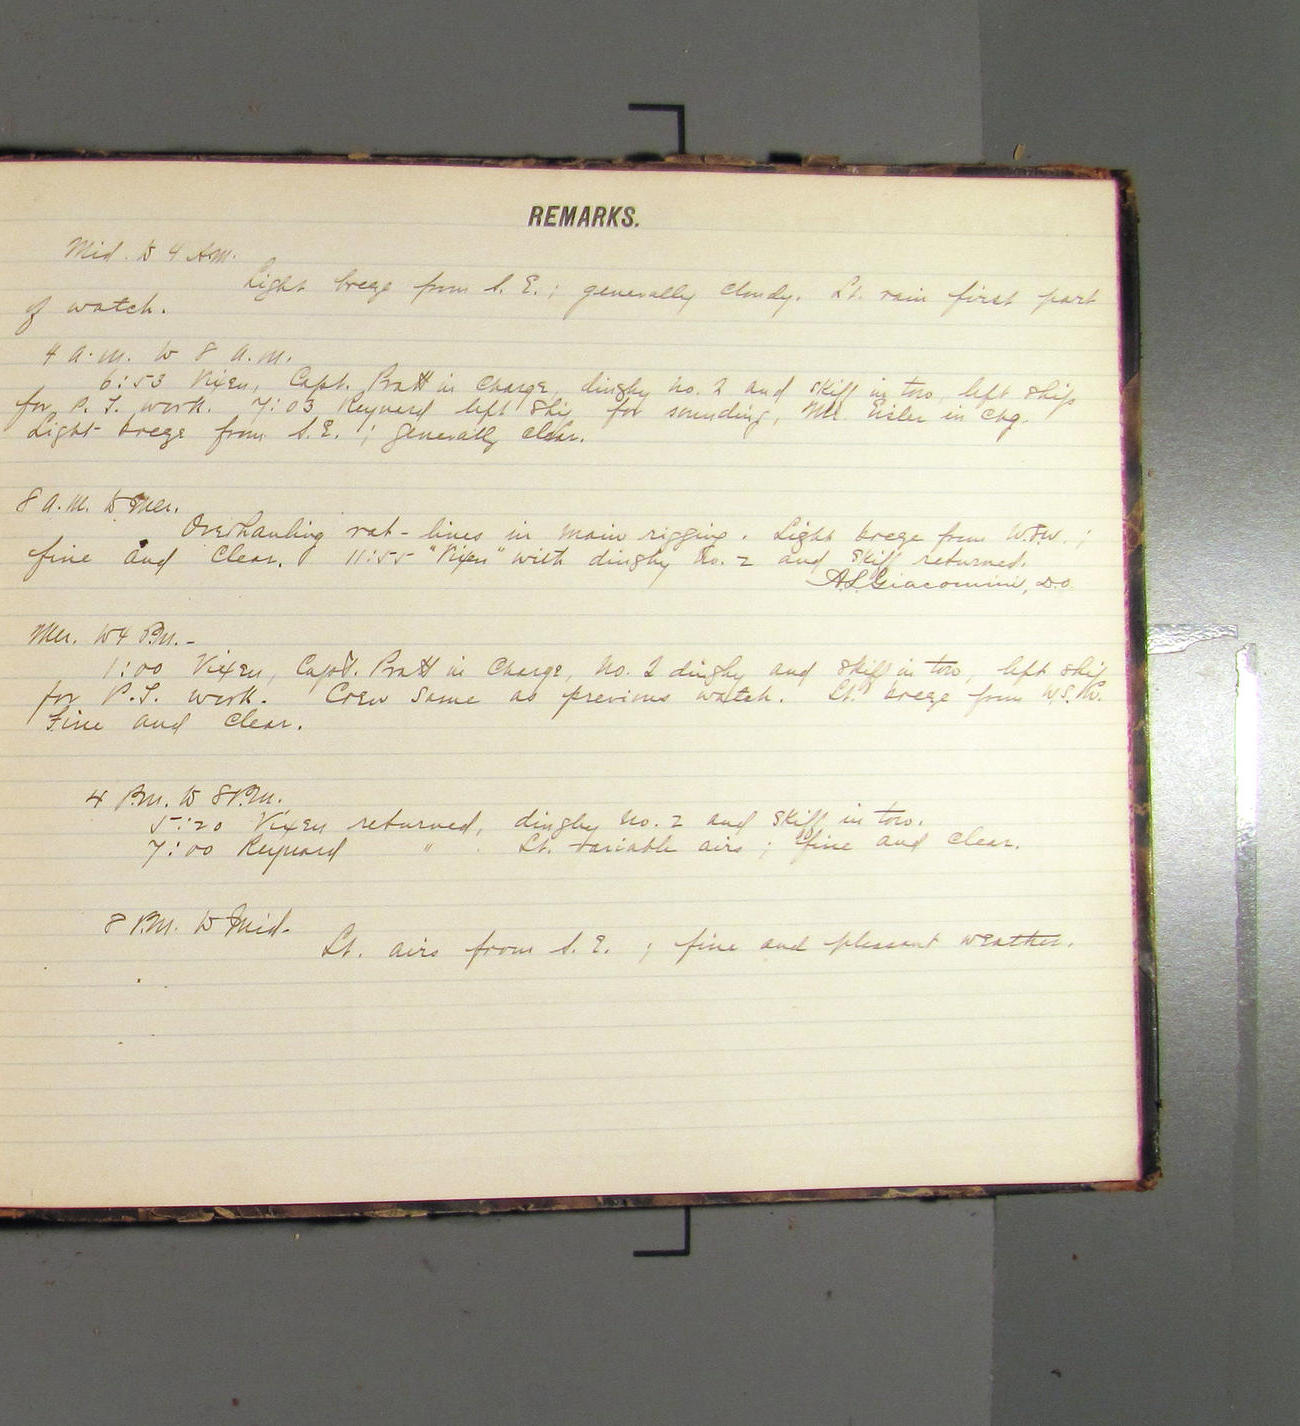 REMARKS.
Mid. to 4 A.M.
Light breeze from S. E. ; generally cloudy. Lt. rain first part
of watch.
4 a.m. to 8 a.m.
6:53 Vixen, Capt. Pratt in charge, dinghy no. 2 and skiff in tow, left ship
for P. T. work. 7:03 Reynard left ship for sounding, Mr. in chg.
Light breeze from S. E. ; generally clear.
8 a.m. to Mer.
Overhauling rat-lines in main rigging. Light breeze from ;
fine and clear. 11:55 "Vixen" with dinghy no. 2 and skiff returned.
A.L. Giacomini, D.O.
Mer. to 4 P.m. -
1:00 Vixen, Capt. Pratt in charge, no. 2 dinghy and skiff in tow, left ship
for P.T. work. Crew same as previous watch. Lt. breeze from W.S.W.
Fine and clear.
4 P.m. to 8 P.m.
5:20 Vixen returned, dinghy no. 2 and skiff in tow.
7:00 Reynard " . Lt. variable airs ; fine and clear.
8 P.m. to Mid.
Lt. airs from S. E. ; fine and pleasant weather.